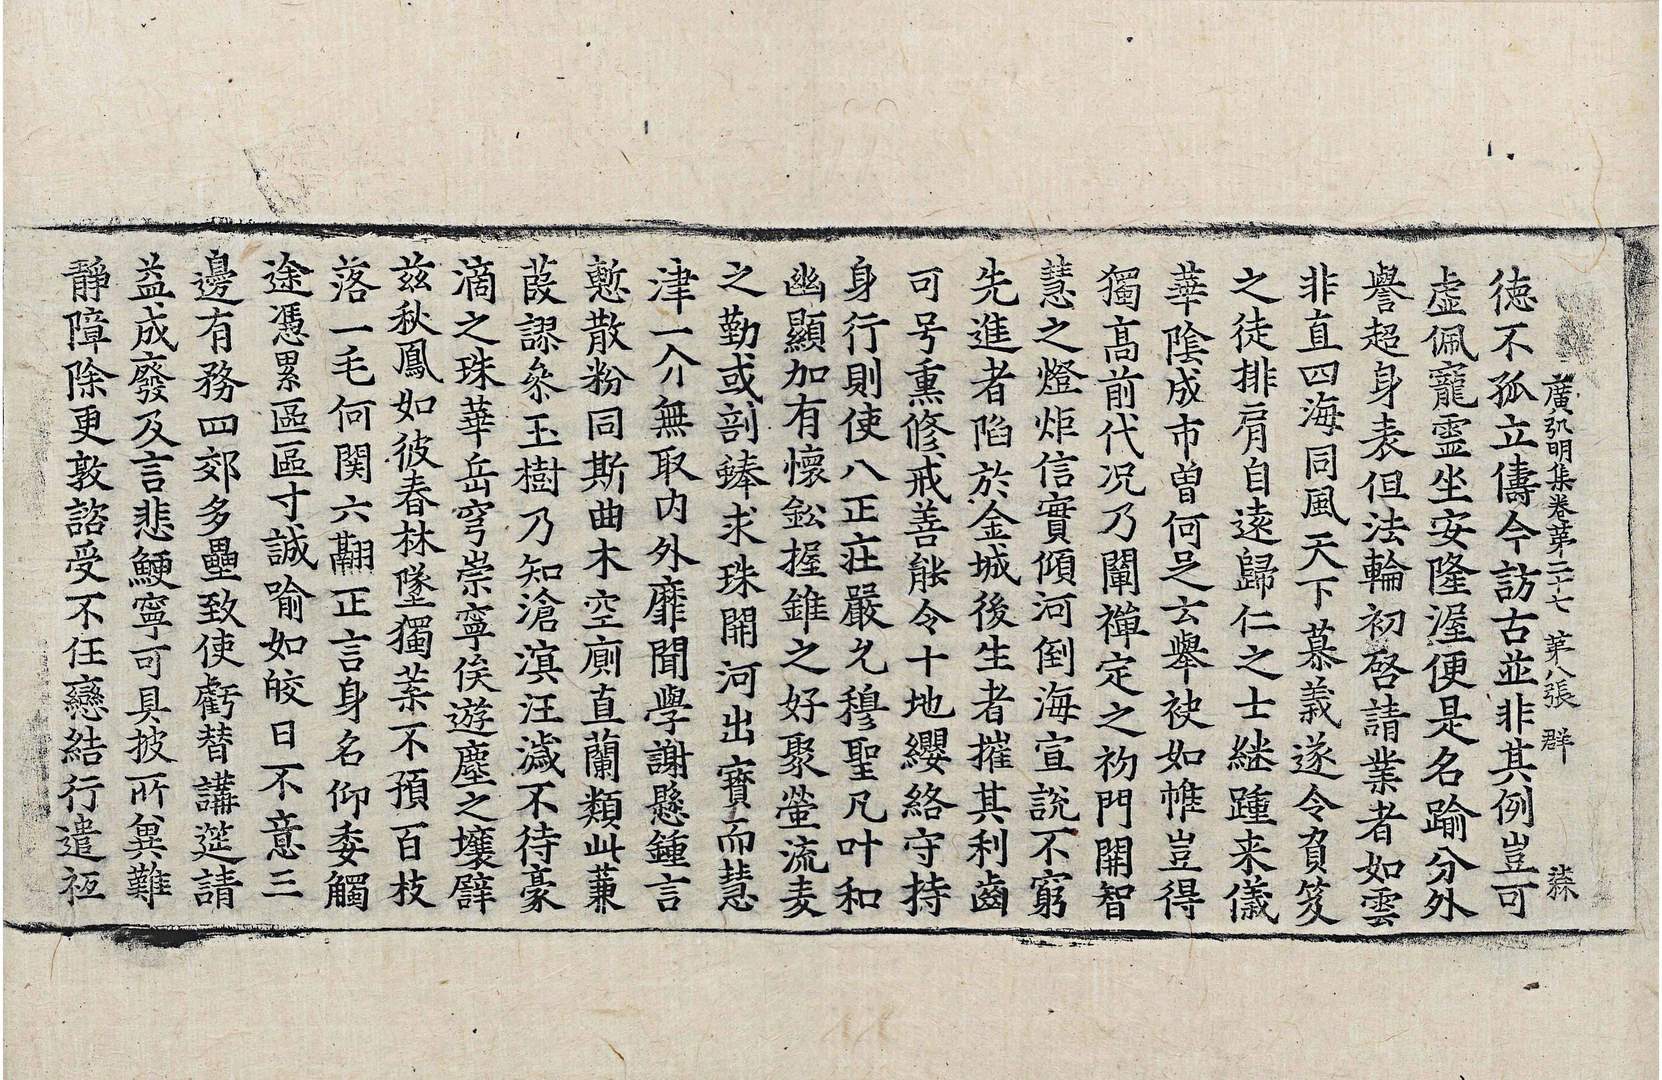 廣弘明集卷第二十七 第八張 群 森
徳不孤立儔今訪古並非其例豈可
虛佩寵靈坐安隆渥便是名踰分外
譽超身表但法輪初啓請業者如雲
非直四海同風天下慕義遂令負笈
之徒排肩自遠歸仁之士継踵来儀
華陰成市曽何足云舉袂如帷豈得
獨高前代况乃闡禪定之初門開智
慧之燈炬信實傾河倒海宣說不窮
先進者陷於金城後生者摧其利齒
可号熏修戒善能令十地纓絡守持
身行則使八正莊嚴允穆聖凡叶和
幽顯加有懷鈆握錐之好聚螢流麦
之勤或剖蜯求珠開河出寳而慧
津一介無取內外靡聞學謝懸鍾言
慙散粉同斯曲木空廁直蘭類此蒹
葭謬叅玉樹乃知滄溟汪濊不待豪
滴之珠華岳穹崇寧俟遊塵之壤譬
兹秋鳳如彼春林墜獨葉不預百枝
落一毛何関六翮正言身名仰委觸
途憑累區區寸誠喻如皎日不意三
邊有務四郊多壘致使虧替講筵請
益成廢及言悲鯁寧可具披所兾難
靜障除更敦諮受不任戀結行遣祗